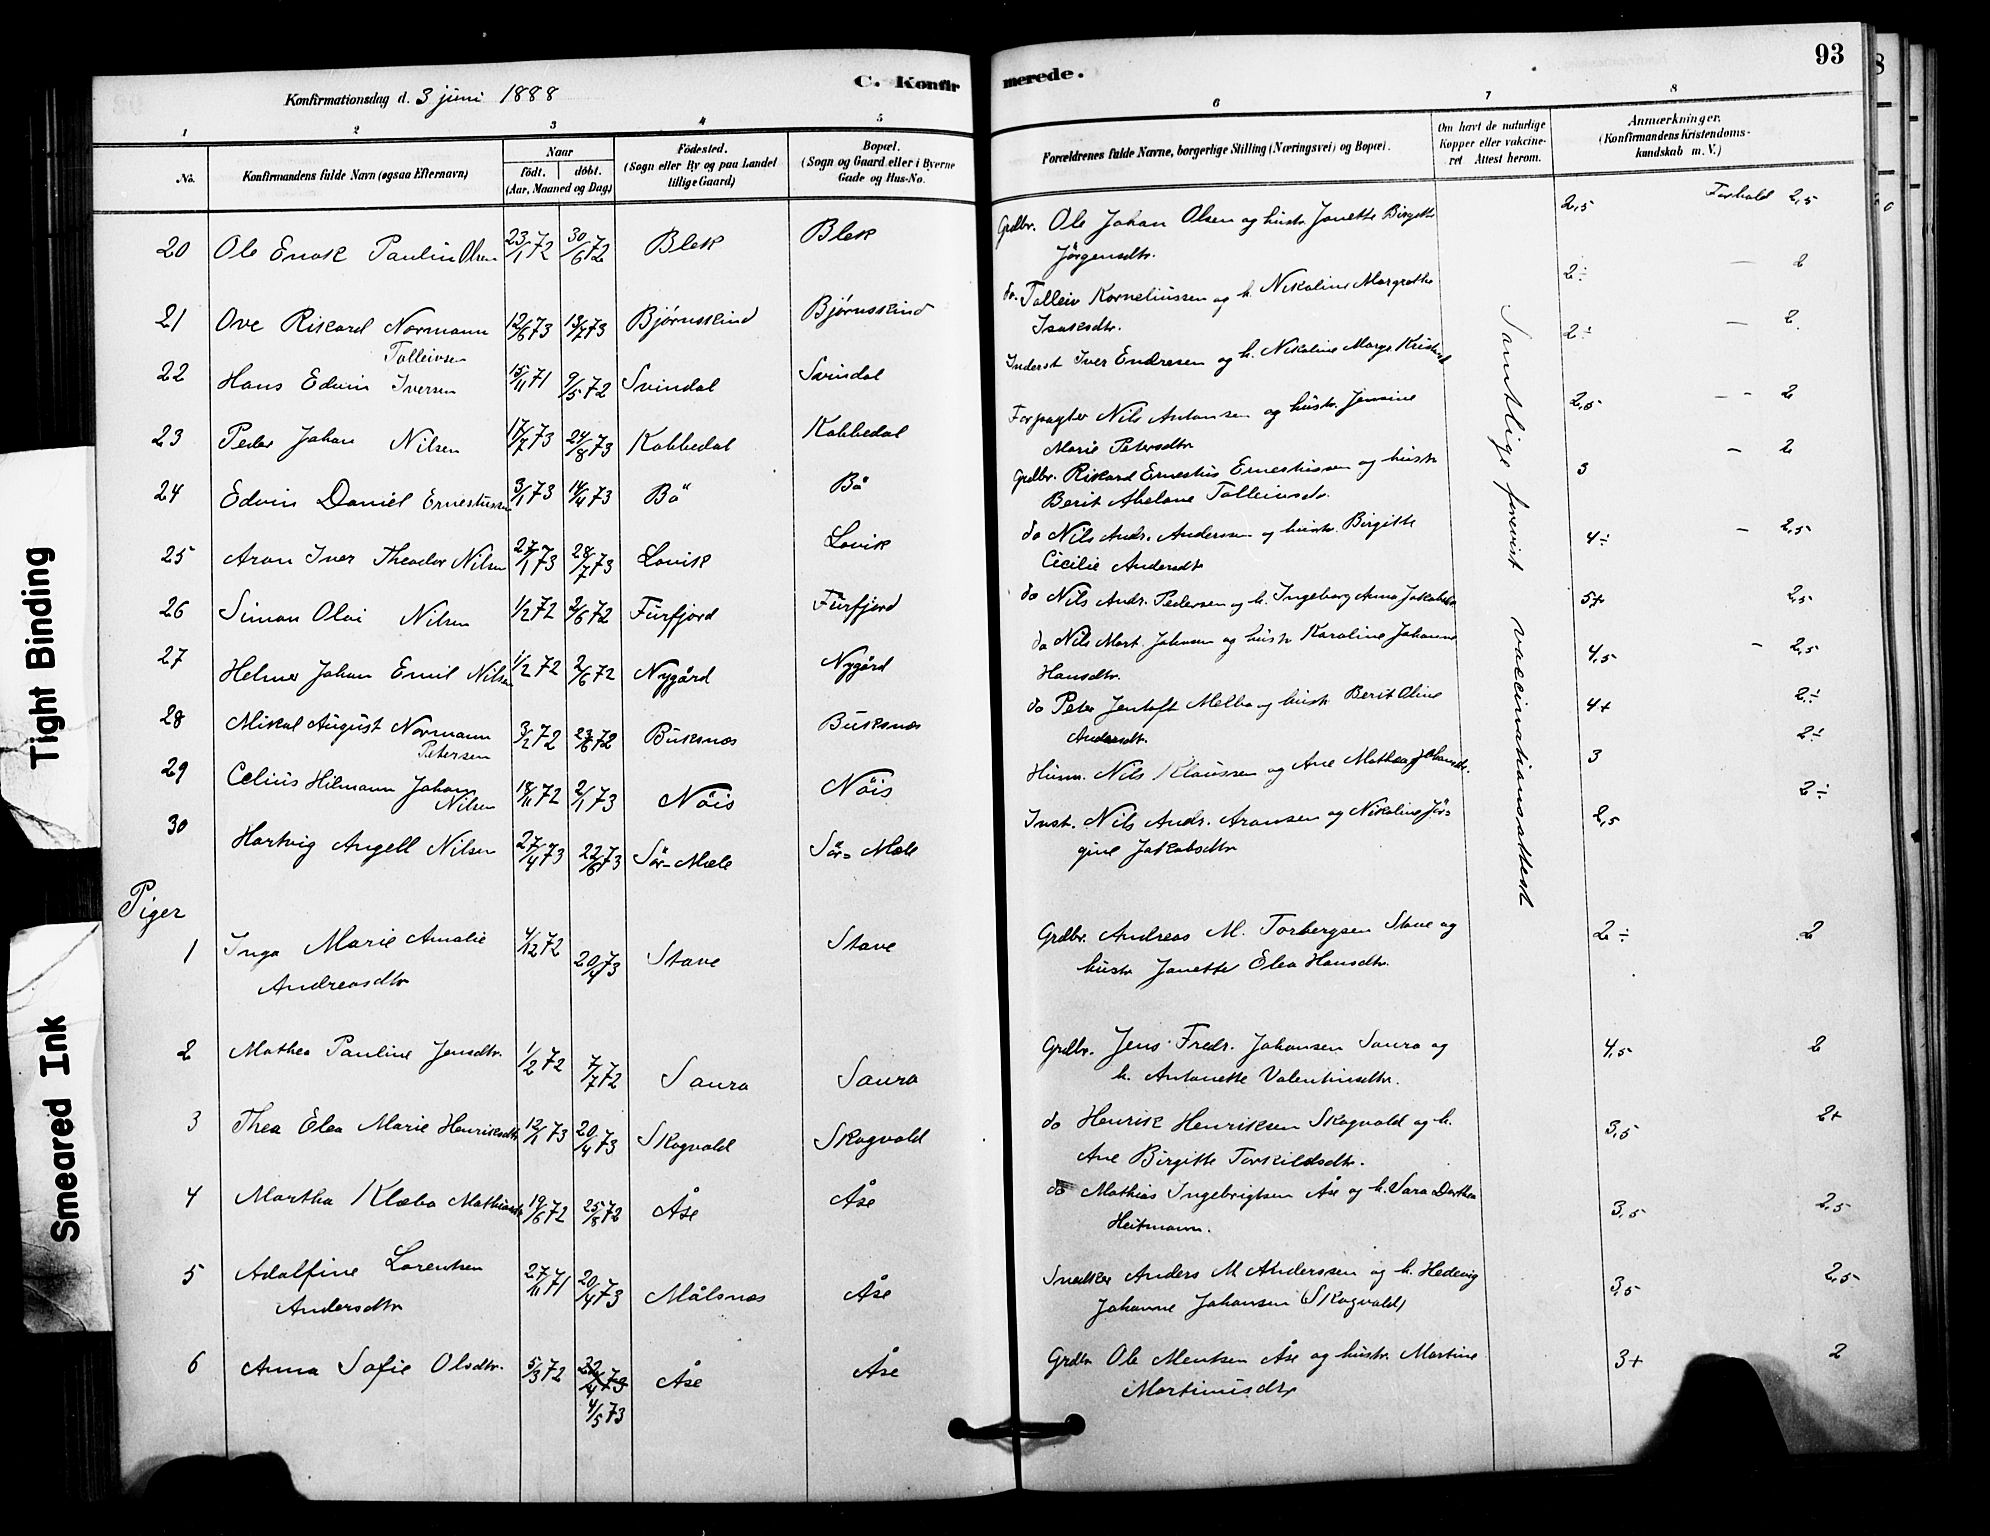 Tight Binding
Smeared Ink
Konfirmationsdag d. 3 juni 1888
C. Konfirmerede.
93
1 2 3 4 5 6 7 8
No.
Konfirmandens fulde Navn (ogsaa Efternavn)
Naar
födt. döbt.
(Aar, Maaned og Dag)
Födested.
(Sogn eller By og paa Landet
tillige Gaard)
Bopæl.
(Sogn og Gaard eller i Byerne
Gade og Hus-No.
Forældrenes fulde Navne, borgerlige Stilling (Næringsvei) og Bopæl.
Om havt de naturlige
Kopper eller vakcine-
ret Attest herom.
Anmærkninger.
(Konfirmandens Kristendoms-
kundskab m. V.)
20 Ole Enok Paulin Olsen 23/1 72 30/6 72 Blek Blek Grdbr. Ole Johan Olsen og hustr. Janette Birgitte 2,5 Forhold 2,5
Jörgensdtr.
21 Ove Rikard Normann 12/6 73 13/7 73 Bjørnskind Bjørnskind do. Tolleiv Korneliussen og h. Nikoline Margrethe 2÷ — 2
Tolleivsen Isaksdtr.
22 Hans Edvin Iversen 15/11 71 9/5 72 Svindal Svindal Inderst Iver Endresen og h. Nikoline Margr. 2÷ — 2
23 Peder Johan Nilsen 17/7 73 24/8 73 Kobbedal Kobbedal Forpagter Nils Antonsen og hustr. Jensine 2,5 — 2
Marie Petersdtr
24 Edvin Daniel Ernestussen 3/1 73 14/4 73 Bö Bö Grdbr. Rikard Ernestus Ernestussen og hustr 3 — 2
Berit Abelone Tolleivsdr.
25 Aron Iver Theodor Nilsen 27/1 73 28/7 73 Lovik Lovik do Nils Andr. Anderssen og hustr. Birgitte 4÷ — 2,5
Cicilie Andersdtr
26 Simon Olai Nilsen 1/2 72 2/6 72 Fürfjord Fürfjord do Nils Andr. Pedersen og h. Ingeborg Anna Jakobsdtr 5+ 2,5
27 Helmer Johan Emil Nilsen 1/2 72 2/6 72 Nygård Nygård do Nils Mart. Johnsen og hustr Karoline Johanne 4,5 - 2,5
Hansdtr.
28 Mikal August Normann 3/2 72 23/6 72 Buksnæs Buksnæs do Peter Jentoft Melbo og hustr Berit Oline 4+ 2÷
Petersen Andersdtr.
29 Celius Hilmann Johan 18/11 72 2/1 73 Nöis Nöis Husm. Nils Klaussen og Ane Mathea Johansdtr. 3 2÷
Nilsen
30 Hartvig Angell Nilsen 27/4 73 22/6 73 Sör-Mæle Sör-Mæle Inst. Nils Andr. Aronsen og Nikoline Jör- 2,5 2÷
gine Jakobsdtr
Samtlige forevist vaccinationsattest
Piger
1 Inga Marie Amalie 4/12 72 20/4 73 Stave Stave Grdbr. Andreas M. Torbergsen Stave og 2÷ 2
Andreasdtr hustr Janette Elea Hansdtr.
2 Mathea Pauline Jensdtr. 1/2 72 7/7 72 Saura Saura Grdbr. Jens Fredr. Johansen Saura og 4,5 2
h. Antonette Valentinsdtr.
3 Thea Elea Marie Henriksdtr 12/1 73 20/4 73 Skogvold Skogvold do Henrik Henriksen Skogvold og h. 3,5 2+
Ane Birgitte Torkildsdtr.
4 Martha Klæbo Mathiasdtr 19/6 72 25/8 72 Åse Åse do Mathias Ingebrigtsen Åse og h. Sara Dorthea 3,5 2,5
Heitmann.
5 Adolfine Lorentsen 27/11 71 20/4 73 Målsnes Åse Snedker Anders M Anderssen og h. Hedevig 3,5 2,5
Andersdtr Johanne Johansen (Skogvold)
6 Anna Sofie Olsdtr. 5/3 72 22/4 73 Åse Åse Grdbr Ole Mentsen Åse og hustr. Martine 3+ 2
4/5 73 Martinusdtr